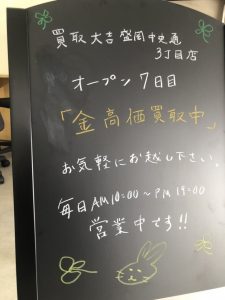 買取大吉盛岡中央通
3丁目店
オープン7日目
「金高価買取中」
お気軽にお越し下さい。
毎日AM10:00~PM19:00
営業中です!!